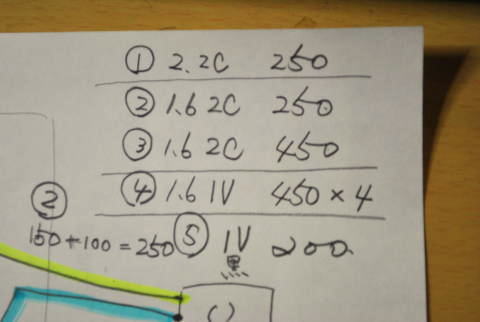 ① 2.2C 250
② 1.6 2C 250
③ 1.6 2C 450
④ 1.6 1V 450×4
②
150+100=250
⑤ 1V 200
黒